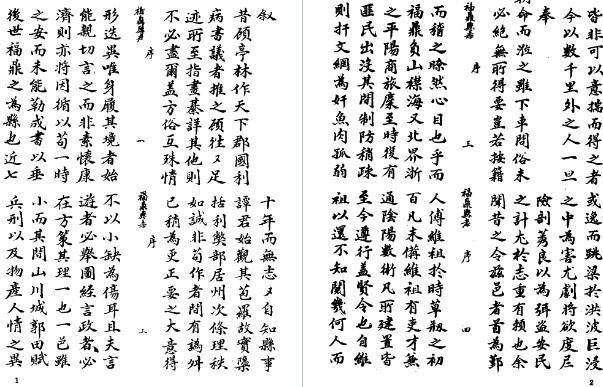 叙
昔顧亭林作天下郡國利
病書議者推之顧往々足
迹所至指畫綦詳其他則
不必盡爾蓋方俗互殊情
福鼎縣志 序 一
形迭異唯身履其境者始
能親切言之而非素懷康
濟則亦將因循以苟一時
之安而未能勒成書以垂
後世福鼎之為縣也近七
十年而無志々自知縣事
譚君始觀其苞羅故實櫽
括利弊部居州次條理秩
如誠非苟作者間有譌舛
已稍為更正要之大意得
福鼎縣志 序 二
不以小缺為傷耳且夫言
遊者必舉圖經言政者必
在方策其理一也一邑雖
小而其間山川城郭田賦
兵刑以及物産人情之異
1
皆非可以意揣而得之者
今以數千里外之人一旦
奉
朝命而涖之雖下車問俗未
必絶無所得要豈若按籍
福鼎縣志 序 三
而稽之瞭然心目也乎而
福鼎負山襟海又北界浙
之平陽商旅麇至時復有
匪民出沒其間制防稍疎
則扞文網為奸魚肉孤弱
或逸而跳梁於洪波巨浸
之中為害尤劇將欲度阨
險剖莠良以為弭盜安民
之計尤於志重有賴也余
聞昔之令茲邑者首為鄞
福鼎縣志 序 四
人傅維祖於時草剙之初
百凡未備維祖有吏才兼
通陰陽數術凡所建置皆
至今遵行蓋賢令也自維
祖以還不知閲幾何人而
2